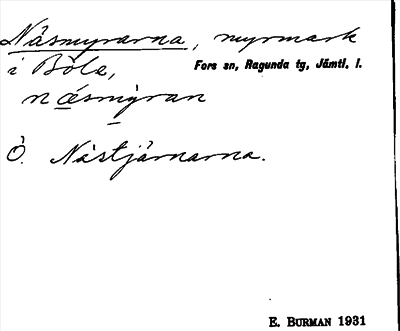 Näsmyrarna, myrmark
i Böle, Fors sn, Ragunda tg, Jämtl. l.
næsmỳran
Ö. Nästjärnarna.
E. BURMAN 1931